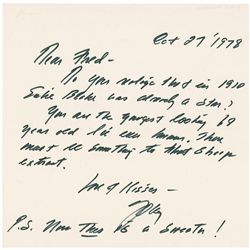 Oct 27 1978
Dear Fred -
Do you realize that in 1910
Eubie Blake was already a star?
You are the youngest looking 69
year old I've ever known. There
must be something to that sheep
extract.
Love & Kisses -
P.S. Now this is a smooth!